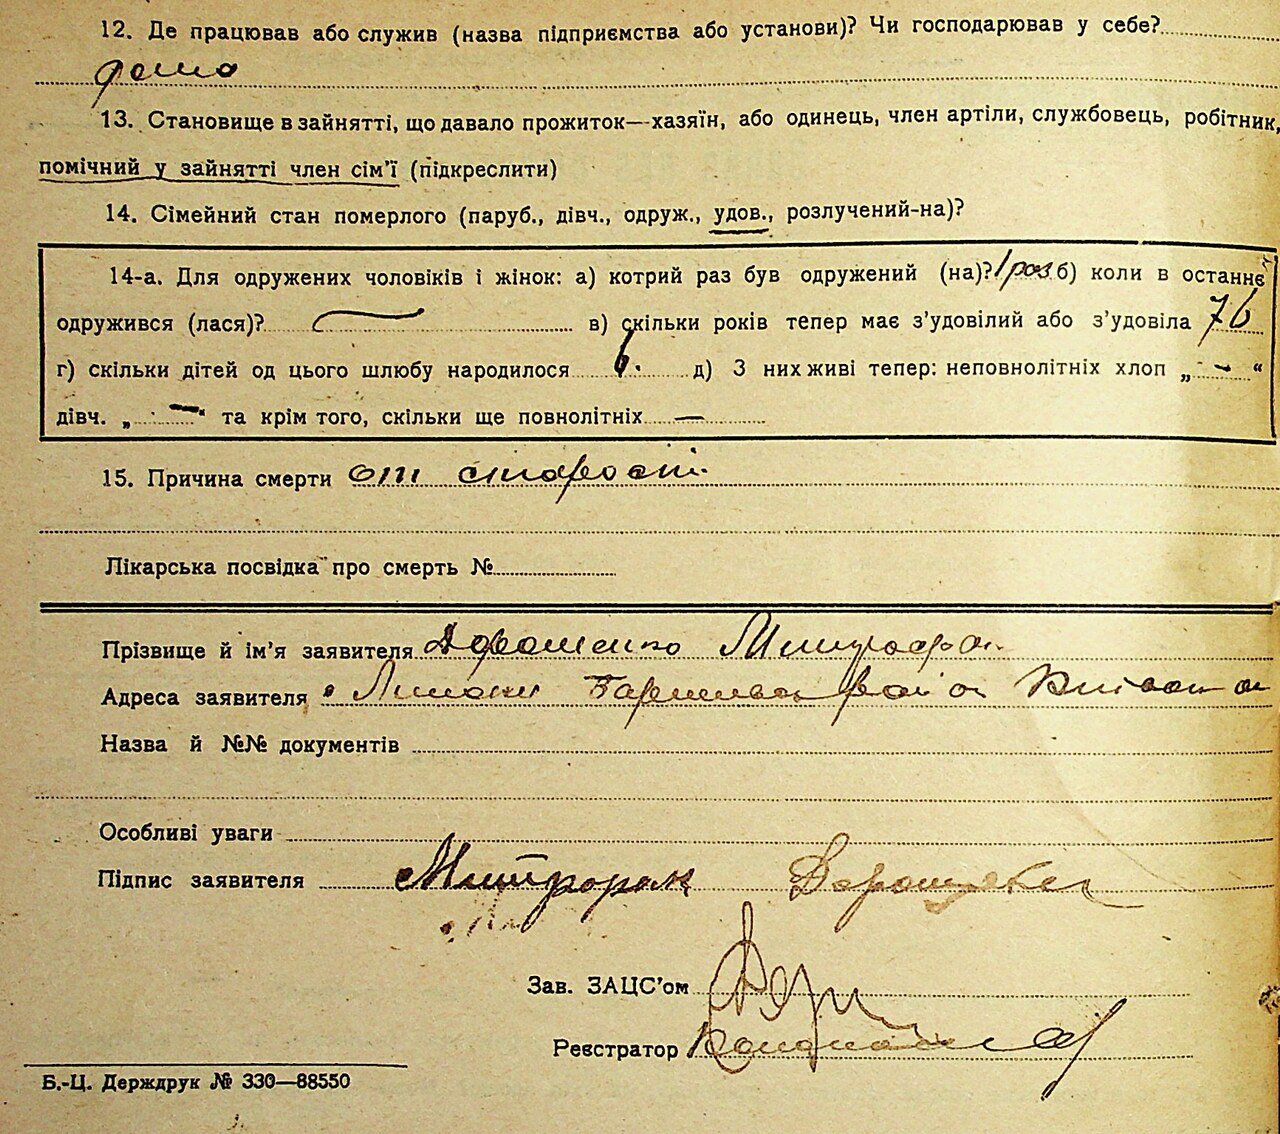 12. Де працював або служив (назва підприємства або установи)? Чи господарював у себе?
13. Становище в зайнятті, що давало прожиток—хазяїн, або одинець, член артіли, службовець, робітник,
помічний у зайнятті член сім'ї (підкреслити)
14. Сімейний стан померлого (паруб., дівч., одруж., удов., розлучений-на)?
14-а. Для одружених чоловіків і жінок: а) котрий раз був одружений (на)? 1 раз б) коли в останнє
одружився (лася)? — в) скільки років тепер має з'удовілий або з'удовіла 76
г) скільки дітей од цього шлюбу народилося 6. д) З них живі тепер: неповнолітніх хлоп „ — “
дівч. „ — “ та крім того, скільки ще повнолітніх —
15. Причина смерти от старости
Лікарська посвідка про смерть №
Прізвище й ім'я заявителя Дорошенко Митрофан
Адреса заявителя
Назва й №№ документів
Особливі уваги
Підпис заявителя Митрофан Дорошенко
Зав. ЗАЦС'ом
Реєстратор
Б.-Ц. Держдрук № 330—88550